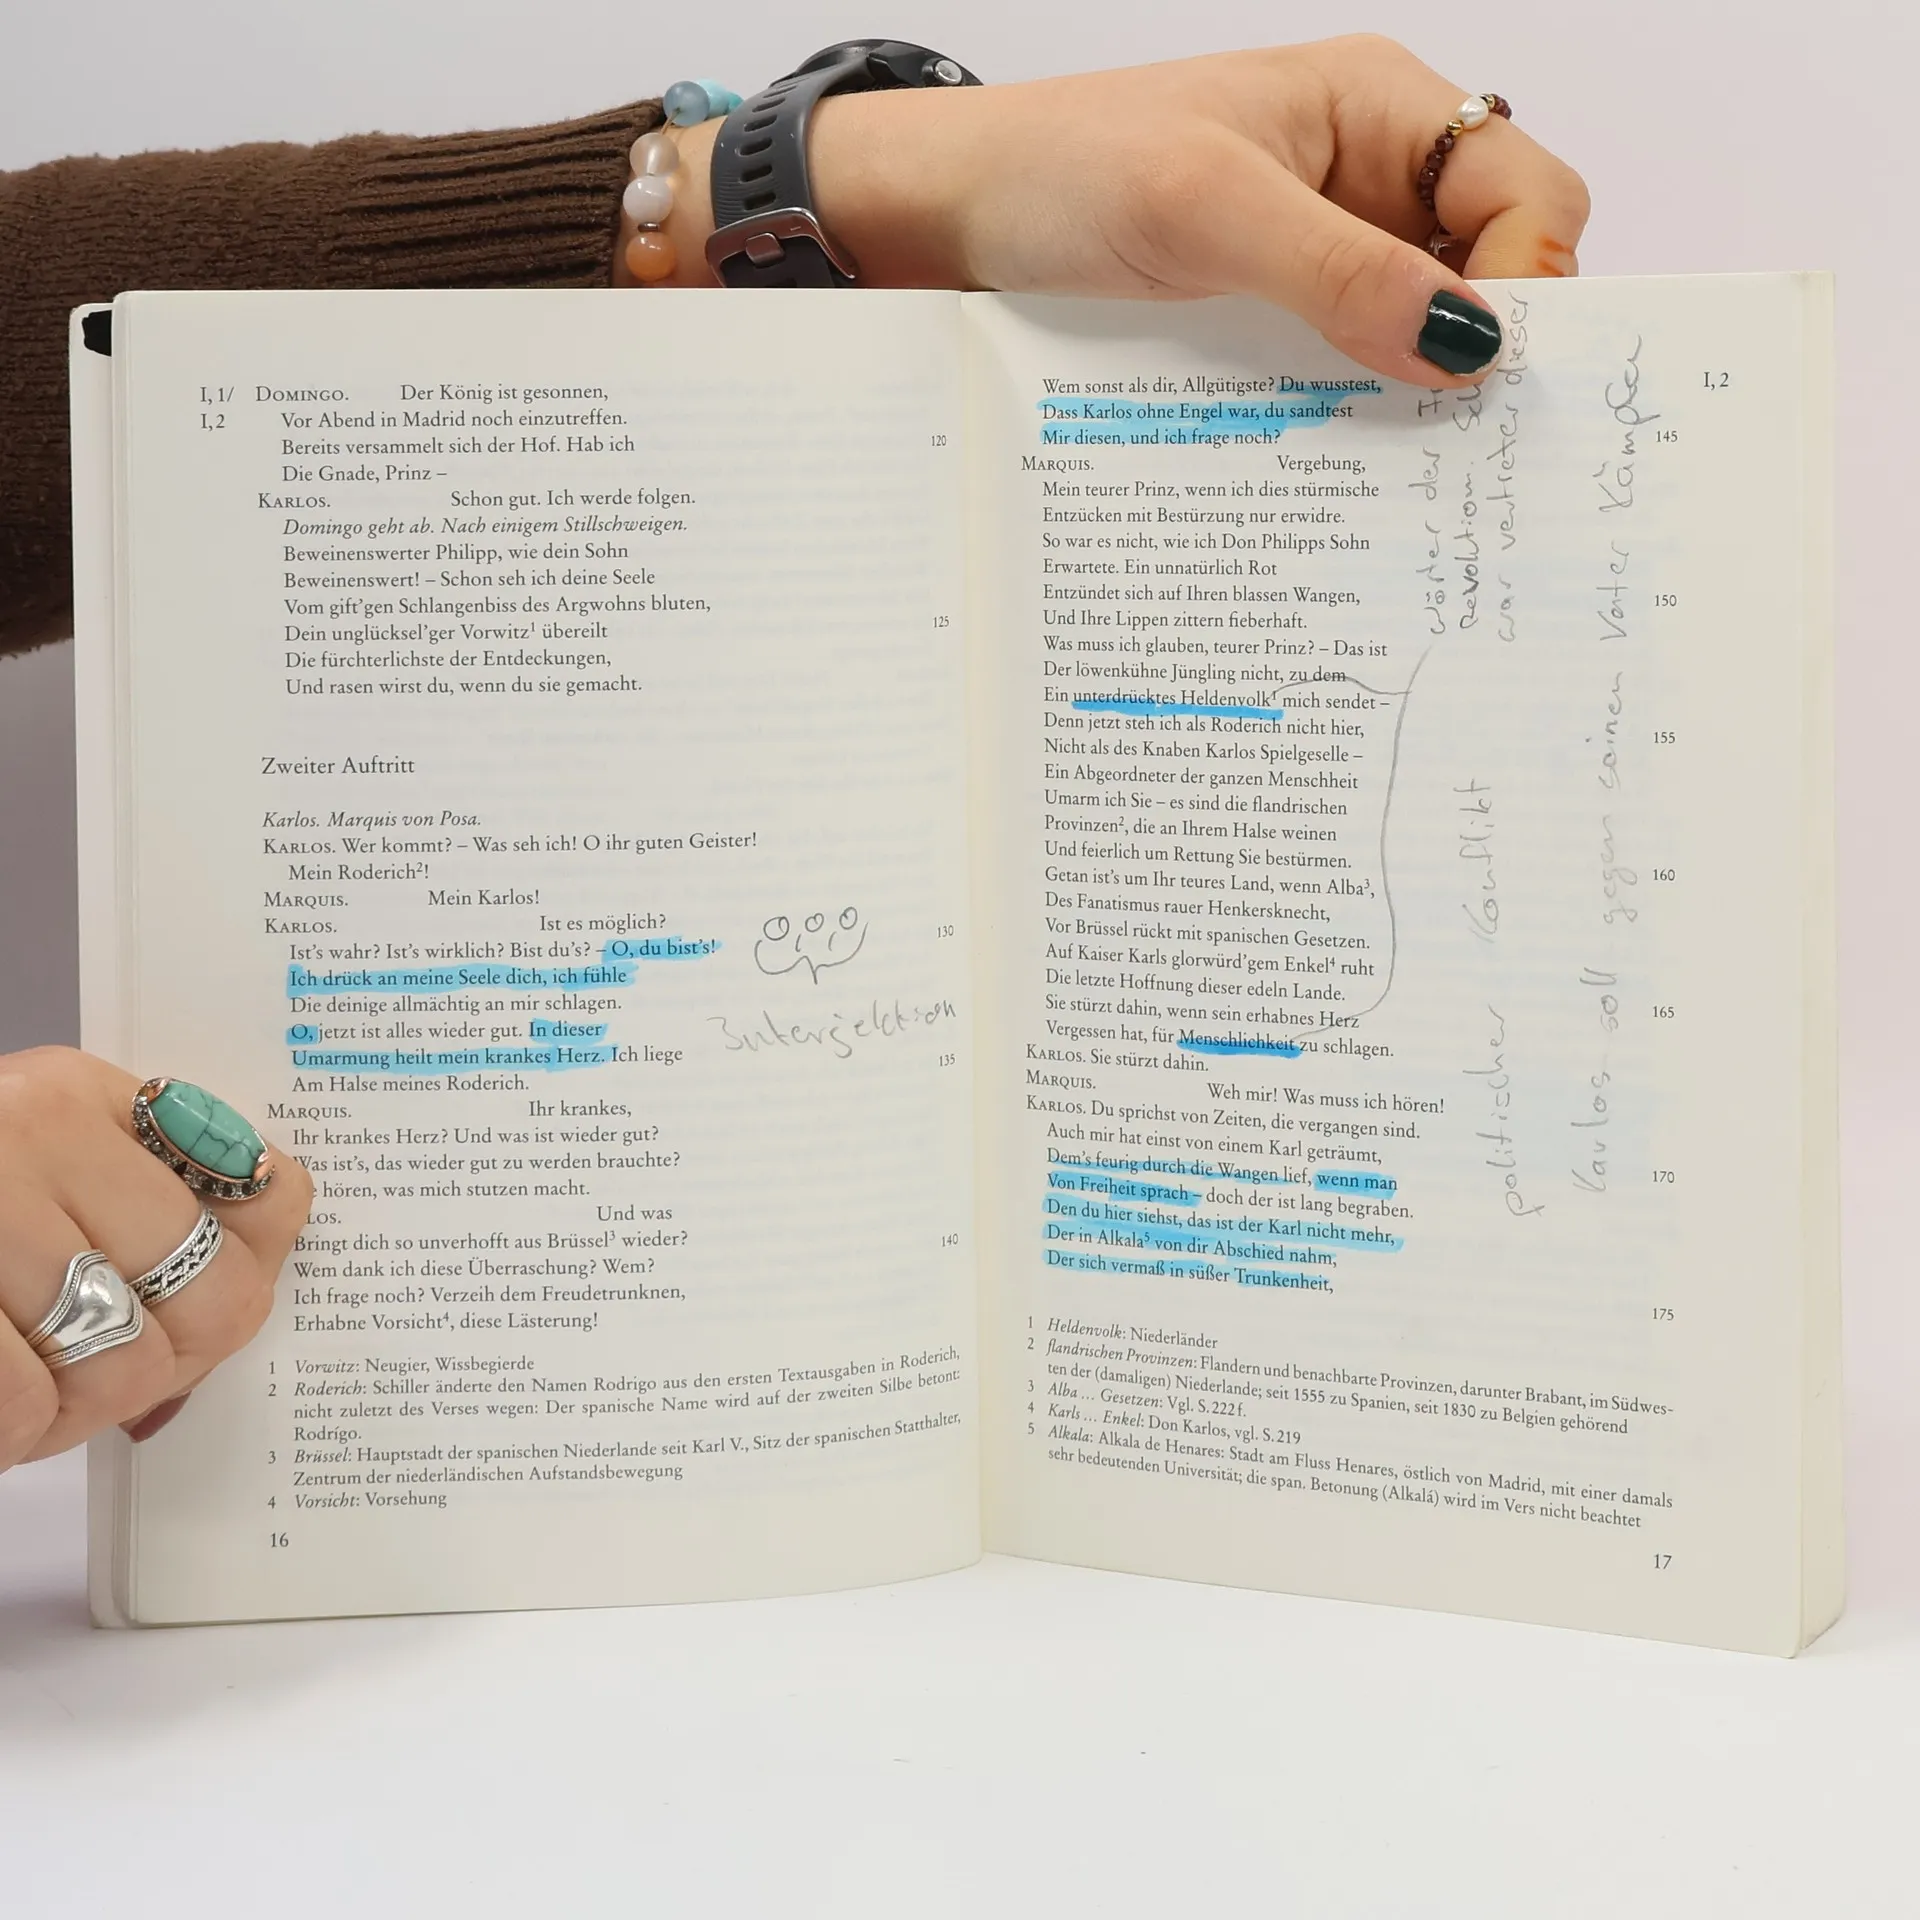 I, 1/ DOMINGO. Der König ist gesonnen,
I, 2 Vor Abend in Madrid noch einzutreffen.
Bereits versammelt sich der Hof. Hab ich 120
Die Gnade, Prinz –
KARLOS. Schon gut. Ich werde folgen.
Domingo geht ab. Nach einigem Stillschweigen.
Beweinenswerter Philipp, wie dein Sohn
Beweinenswert! – Schon seh ich deine Seele
Vom gift'gen Schlangenbiss des Argwohns bluten,
Dein unglücksel'ger Vorwitz¹ übereilt 125
Die fürchterlichste der Entdeckungen,
Und rasen wirst du, wenn du sie gemacht.
Zweiter Auftritt
Karlos. Marquis von Posa.
KARLOS. Wer kommt? – Was seh ich! O ihr guten Geister!
Mein Roderich²!
MARQUIS. Mein Karlos!
KARLOS. Ist es möglich?
Ist's wahr? Ist's wirklich? Bist du's? – O, du bist's! 130
Ich drück an meine Seele dich, ich fühle
Die deinige allmächtig an mir schlagen.
O, jetzt ist alles wieder gut. In dieser
Umarmung heilt mein krankes Herz. Ich liege 135
Am Halse meines Roderich.
MARQUIS. Ihr krankes,
Ihr krankes Herz? Und was ist wieder gut?
Was ist's, das wieder gut zu werden brauchte?
hören, was mich stutzen macht.
LOS. Und was
Bringt dich so unverhofft aus Brüssel³ wieder? 140
Wem dank ich diese Überraschung? Wem?
Ich frage noch? Verzeih dem Freudetrunknen,
Erhabne Vorsicht⁴, diese Lästerung!
Interjektion
1 Vorwitz: Neugier, Wissbegierde
2 Roderich: Schiller änderte den Namen Rodrigo aus den ersten Textausgaben in Roderich,
nicht zuletzt des Verses wegen: Der spanische Name wird auf der zweiten Silbe betont:
Rodrígo.
3 Brüssel: Hauptstadt der spanischen Niederlande seit Karl V., Sitz der spanischen Statthalter,
Zentrum der niederländischen Aufstandsbewegung
4 Vorsicht: Vorsehung
16
Wem sonst als dir, Allgütigste? Du wusstest, I, 2
Dass Karlos ohne Engel war, du sandtest
Mir diesen, und ich frage noch? 145
MARQUIS. Vergebung,
Mein teurer Prinz, wenn ich dies stürmische
Entzücken mit Bestürzung nur erwidre.
So war es nicht, wie ich Don Philipps Sohn
Erwartete. Ein unnatürlich Rot
Entzündet sich auf Ihren blassen Wangen, 150
Und Ihre Lippen zittern fieberhaft.
Was muss ich glauben, teurer Prinz? – Das ist
Der löwenkühne Jüngling nicht, zu dem
Ein unterdrücktes Heldenvolk¹ mich sendet –
Denn jetzt steh ich als Roderich nicht hier, 155
Nicht als des Knaben Karlos Spielgeselle –
Ein Abgeordneter der ganzen Menschheit
Umarm ich Sie – es sind die flandrischen
Provinzen², die an Ihrem Halse weinen
Und feierlich um Rettung Sie bestürmen.
Getan ist's um Ihr teures Land, wenn Alba³, 160
Des Fanatismus rauer Henkersknecht,
Vor Brüssel rückt mit spanischen Gesetzen.
Auf Kaiser Karls glorwürd'gem Enkel⁴ ruht
Die letzte Hoffnung dieser edeln Lande.
Sie stürzt dahin, wenn sein erhabnes Herz 165
Vergessen hat, für Menschlichkeit zu schlagen.
KARLOS. Sie stürzt dahin.
MARQUIS. Weh mir! Was muss ich hören!
KARLOS. Du sprichst von Zeiten, die vergangen sind.
Auch mir hat einst von einem Karl geträumt,
Dem's feurig durch die Wangen lief, wenn man 170
Von Freiheit sprach – doch der ist lang begraben.
Den du hier siehst, das ist der Karl nicht mehr,
Der in Alkala⁵ von dir Abschied nahm,
Der sich vermaß in süßer Trunkenheit,
175
wörter der
Revolution.
war vertreter dieser
politischer Konflikt
Karlos soll gegen seinen Vater Kämpfen
1 Heldenvolk: Niederländer
2 flandrischen Provinzen: Flandern und benachbarte Provinzen, darunter Brabant, im Südwes-
ten der (damaligen) Niederlande; seit 1555 zu Spanien, seit 1830 zu Belgien gehörend
3 Alba ... Gesetzen: Vgl. S. 222 f.
4 Karls ... Enkel: Don Karlos, vgl. S. 219
5 Alkala: Alkala de Henares: Stadt am Fluss Henares, östlich von Madrid, mit einer damals
sehr bedeutenden Universität; die span. Betonung (Alkalá) wird im Vers nicht beachtet
17